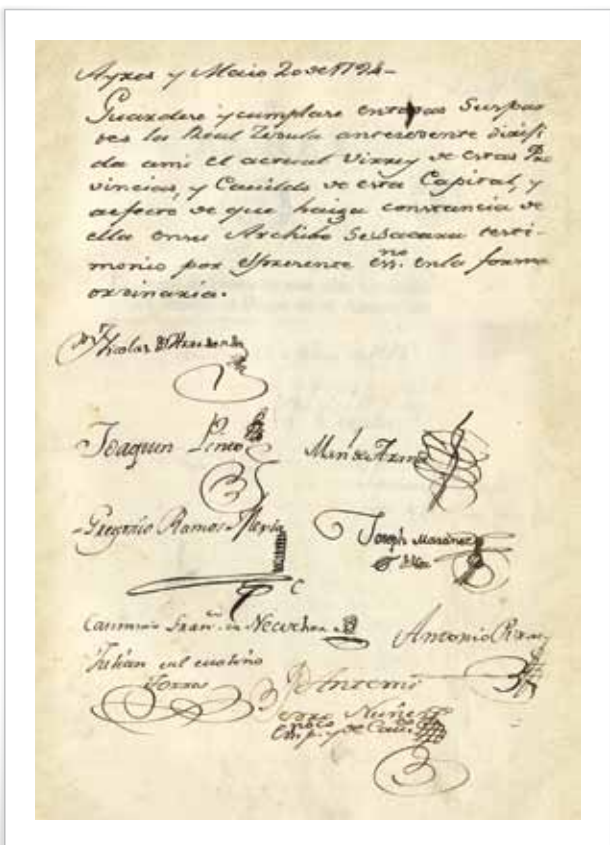 Ayres y Maio 20 de 1794-
Guardese y cumplase entodas Suspar
tes la Real Zedula antecedente diriji
da ami el actual Virrey de estas Pro
vincias, y Cavildo de esta Capital, y
aefecto de que haiga constancia de
ella ensu Archibo Sesacara testi-
monio por elpresente essno. enla forma
ordinaria.
Nicolas de Arredondo
Joaquin Pinto
Manl. de Azcue
Gregorio Ramos Mexia
Joseph Martinez
de
Casimiro Franco. de Necochea
Antonio
Julian del
Torres
Antemi
Nuñez
Essno. pco.
y de Cavdo.